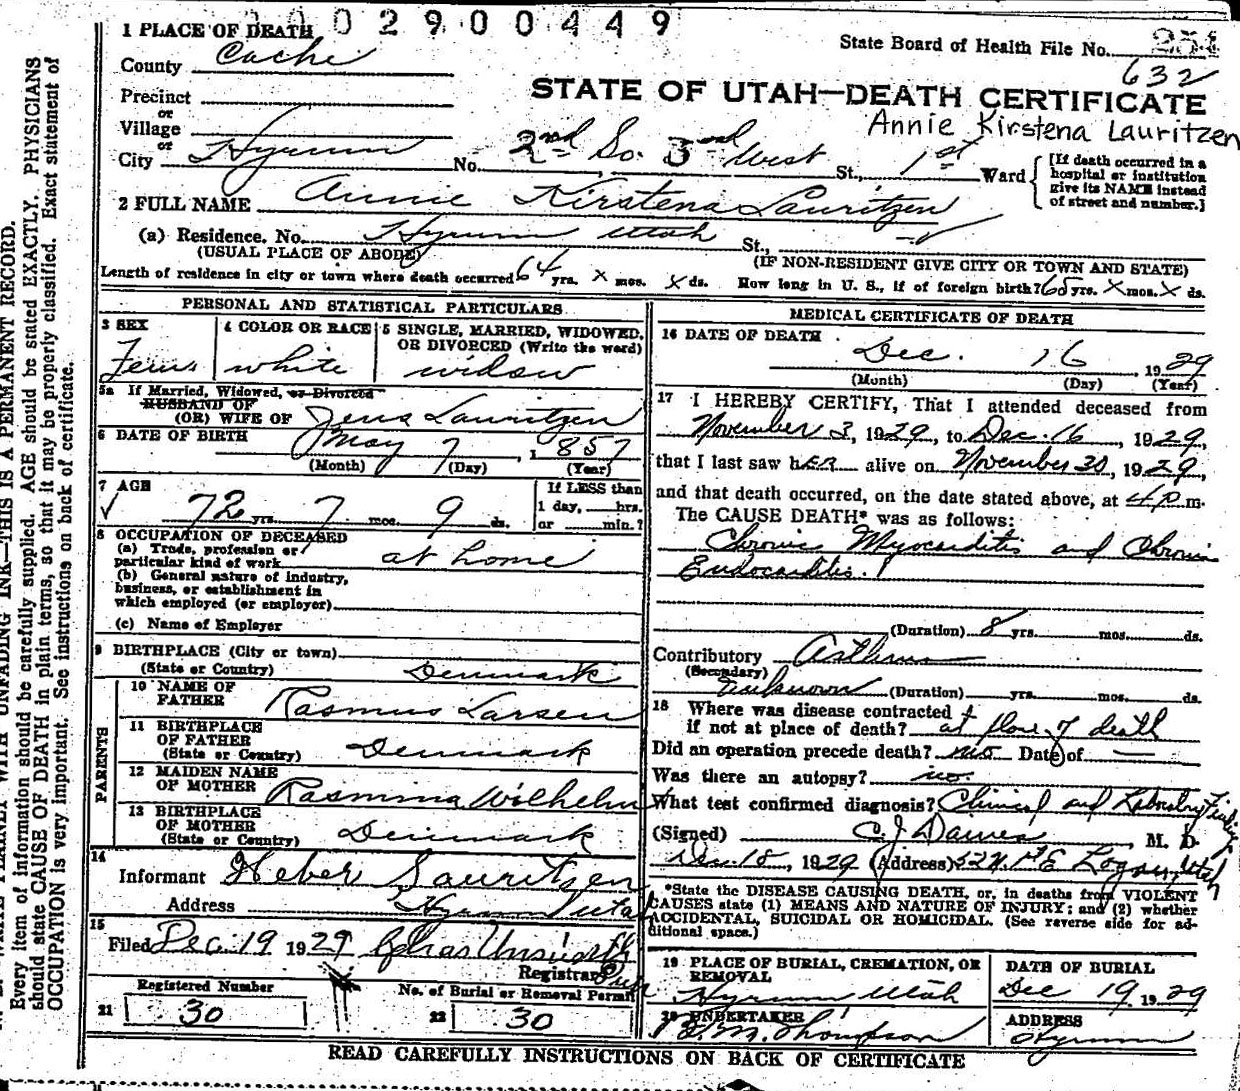 0 0 0 2 9 0 0 4 4 9
1 PLACE OF DEATH
State Board of Health File No. 254
County Cache
632
Precinct
STATE OF UTAH—DEATH CERTIFICATE
or
Village
Annie Kirstena Lauritzen
or
City Hyrum No. 2nd So. 3rd West St., 1st Ward
[If death occurred in a hospital or institution give its NAME instead of street and number.]
2 FULL NAME Annie Kirstena Lauritzen
(a) Residence. No. Hyrum Utah St.,
(USUAL PLACE OF ABODE) (IF NON-RESIDENT GIVE CITY OR TOWN AND STATE)
Length of residence in city or town where death occurred 64 yrs. x mos. x ds. How long in U. S., if of foreign birth? 65 yrs. x mos. x ds.
PERSONAL AND STATISTICAL PARTICULARS
3 SEX Fem
4 COLOR OR RACE white
5 SINGLE, MARRIED, WIDOWED, OR DIVORCED (Write the word) widow
5a If Married, Widowed, or Divorced
HUSBAND OF
(OR) WIFE OF Jens Lauritzen
6 DATE OF BIRTH May 7, 1857
(Month) (Day) (Year)
7 AGE
√ 72 yrs. 7 mos. 9 ds.
If LESS than
1 day, hrs.
or min.?
8 OCCUPATION OF DECEASED
(a) Trade, profession or
particular kind of work at home
(b) General nature of industry,
business, or establishment in
which employed (or employer)
(c) Name of Employer
9 BIRTHPLACE (City or town)
(State or Country) Denmark
PARENTS
10 NAME OF
FATHER Rasmus Larsen
11 BIRTHPLACE
OF FATHER
(State or Country) Denmark
12 MAIDEN NAME
OF MOTHER Rasmina Wilhelm
13 BIRTHPLACE
OF MOTHER
(State or Country) Denmark
14
Informant Heber Lauritzen
Address Hyrum Utah
15
Filed Dec 19 1929
Registrar
Registered Number
21 30
No. of Burial or Removal Permit
22 30
MEDICAL CERTIFICATE OF DEATH
16 DATE OF DEATH
Dec. 16, 1929
(Month) (Day) (Year)
17 I HEREBY CERTIFY, That I attended deceased from
November 3, 1929, to Dec. 16, 1929,
that I last saw hER alive on November 30, 1929,
and that death occurred, on the date stated above, at 4 p m.
The CAUSE DEATH* was as follows:
Chronic Myocarditis and Chronic
Endocarditis.
(Duration) 8 yrs. mos. ds.
Contributory Asthma
(Secondary)
unknown (Duration) yrs. mos. ds.
18 Where was disease contracted
if not at place of death? at place of death
Did an operation precede death? no Date of —
Was there an autopsy? no.
What test confirmed diagnosis? Clinical and Laboratory Findings
(Signed) C. J. Daines M. D.
Dec. 18, 1929 (Address) 52 N. 1st E Logan, Utah
*State the DISEASE CAUSING DEATH, or, in deaths from VIOLENT
CAUSES state (1) MEANS AND NATURE OF INJURY; and (2) whether
ACCIDENTAL, SUICIDAL OR HOMICIDAL. (See reverse side for ad-
ditional space.)
19 PLACE OF BURIAL, CREMATION, OR
REMOVAL
Hyrum Utah
DATE OF BURIAL
Dec 19, 1929
20 UNDERTAKER
Thompson
ADDRESS
Hyrum
READ CAREFULLY INSTRUCTIONS ON BACK OF CERTIFICATE
WITH UNFADING INK—THIS IS A PERMANENT RECORD.
Every item of information should be carefully supplied. AGE should be stated EXACTLY. PHYSICIANS
should state CAUSE OF DEATH in plain terms, so that it may be properly classified. Exact statement of
OCCUPATION is very important. See instructions on back of certificate.